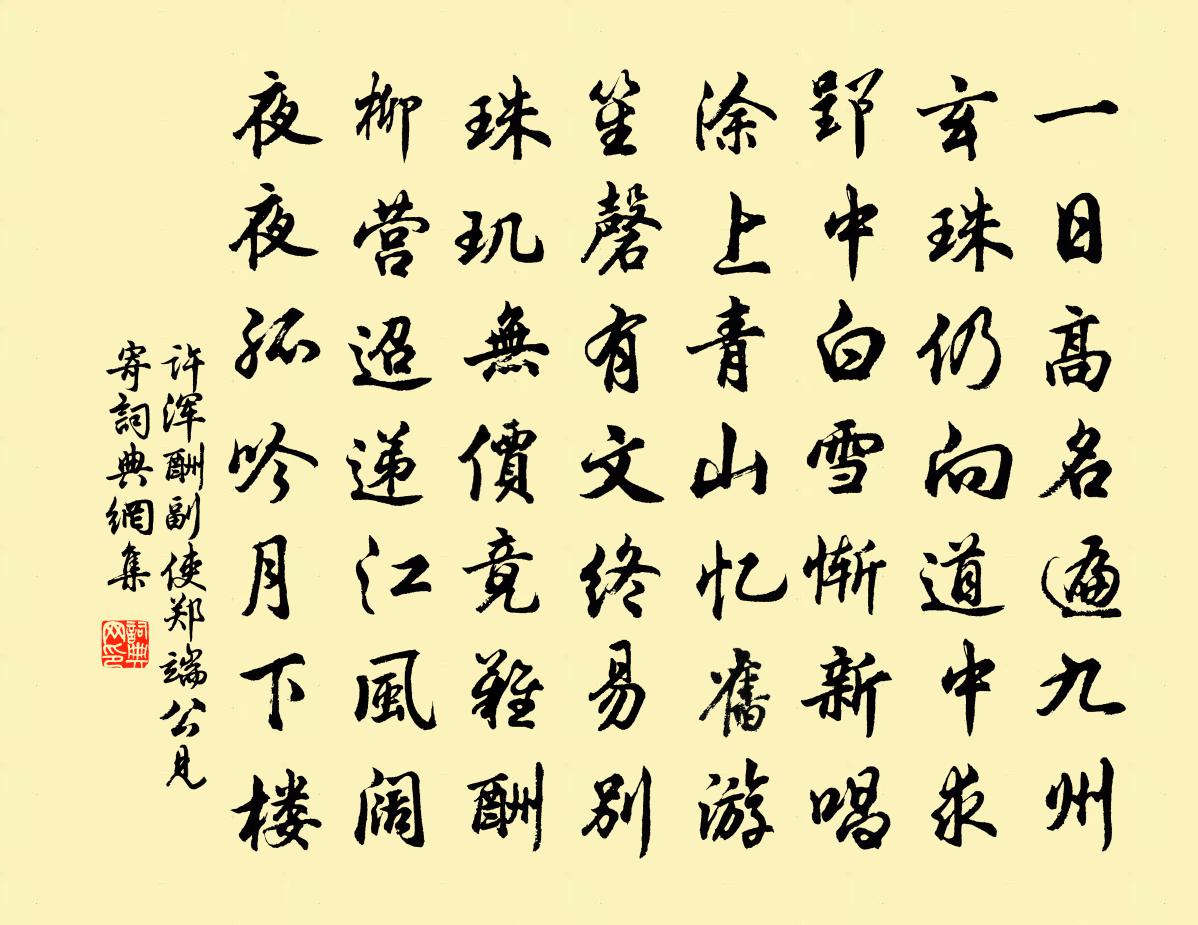 一日高名遍九州
玄珠仍向道中求
郢中白雪惭新唱
涂上青山忆舊游
笙磬有文终易别
珠玑無價竟难酬
柳营迢递江風阔
夜夜孤吟月下楼
许浑酬副使郑端公見
寄詞典網集
詞典
网印